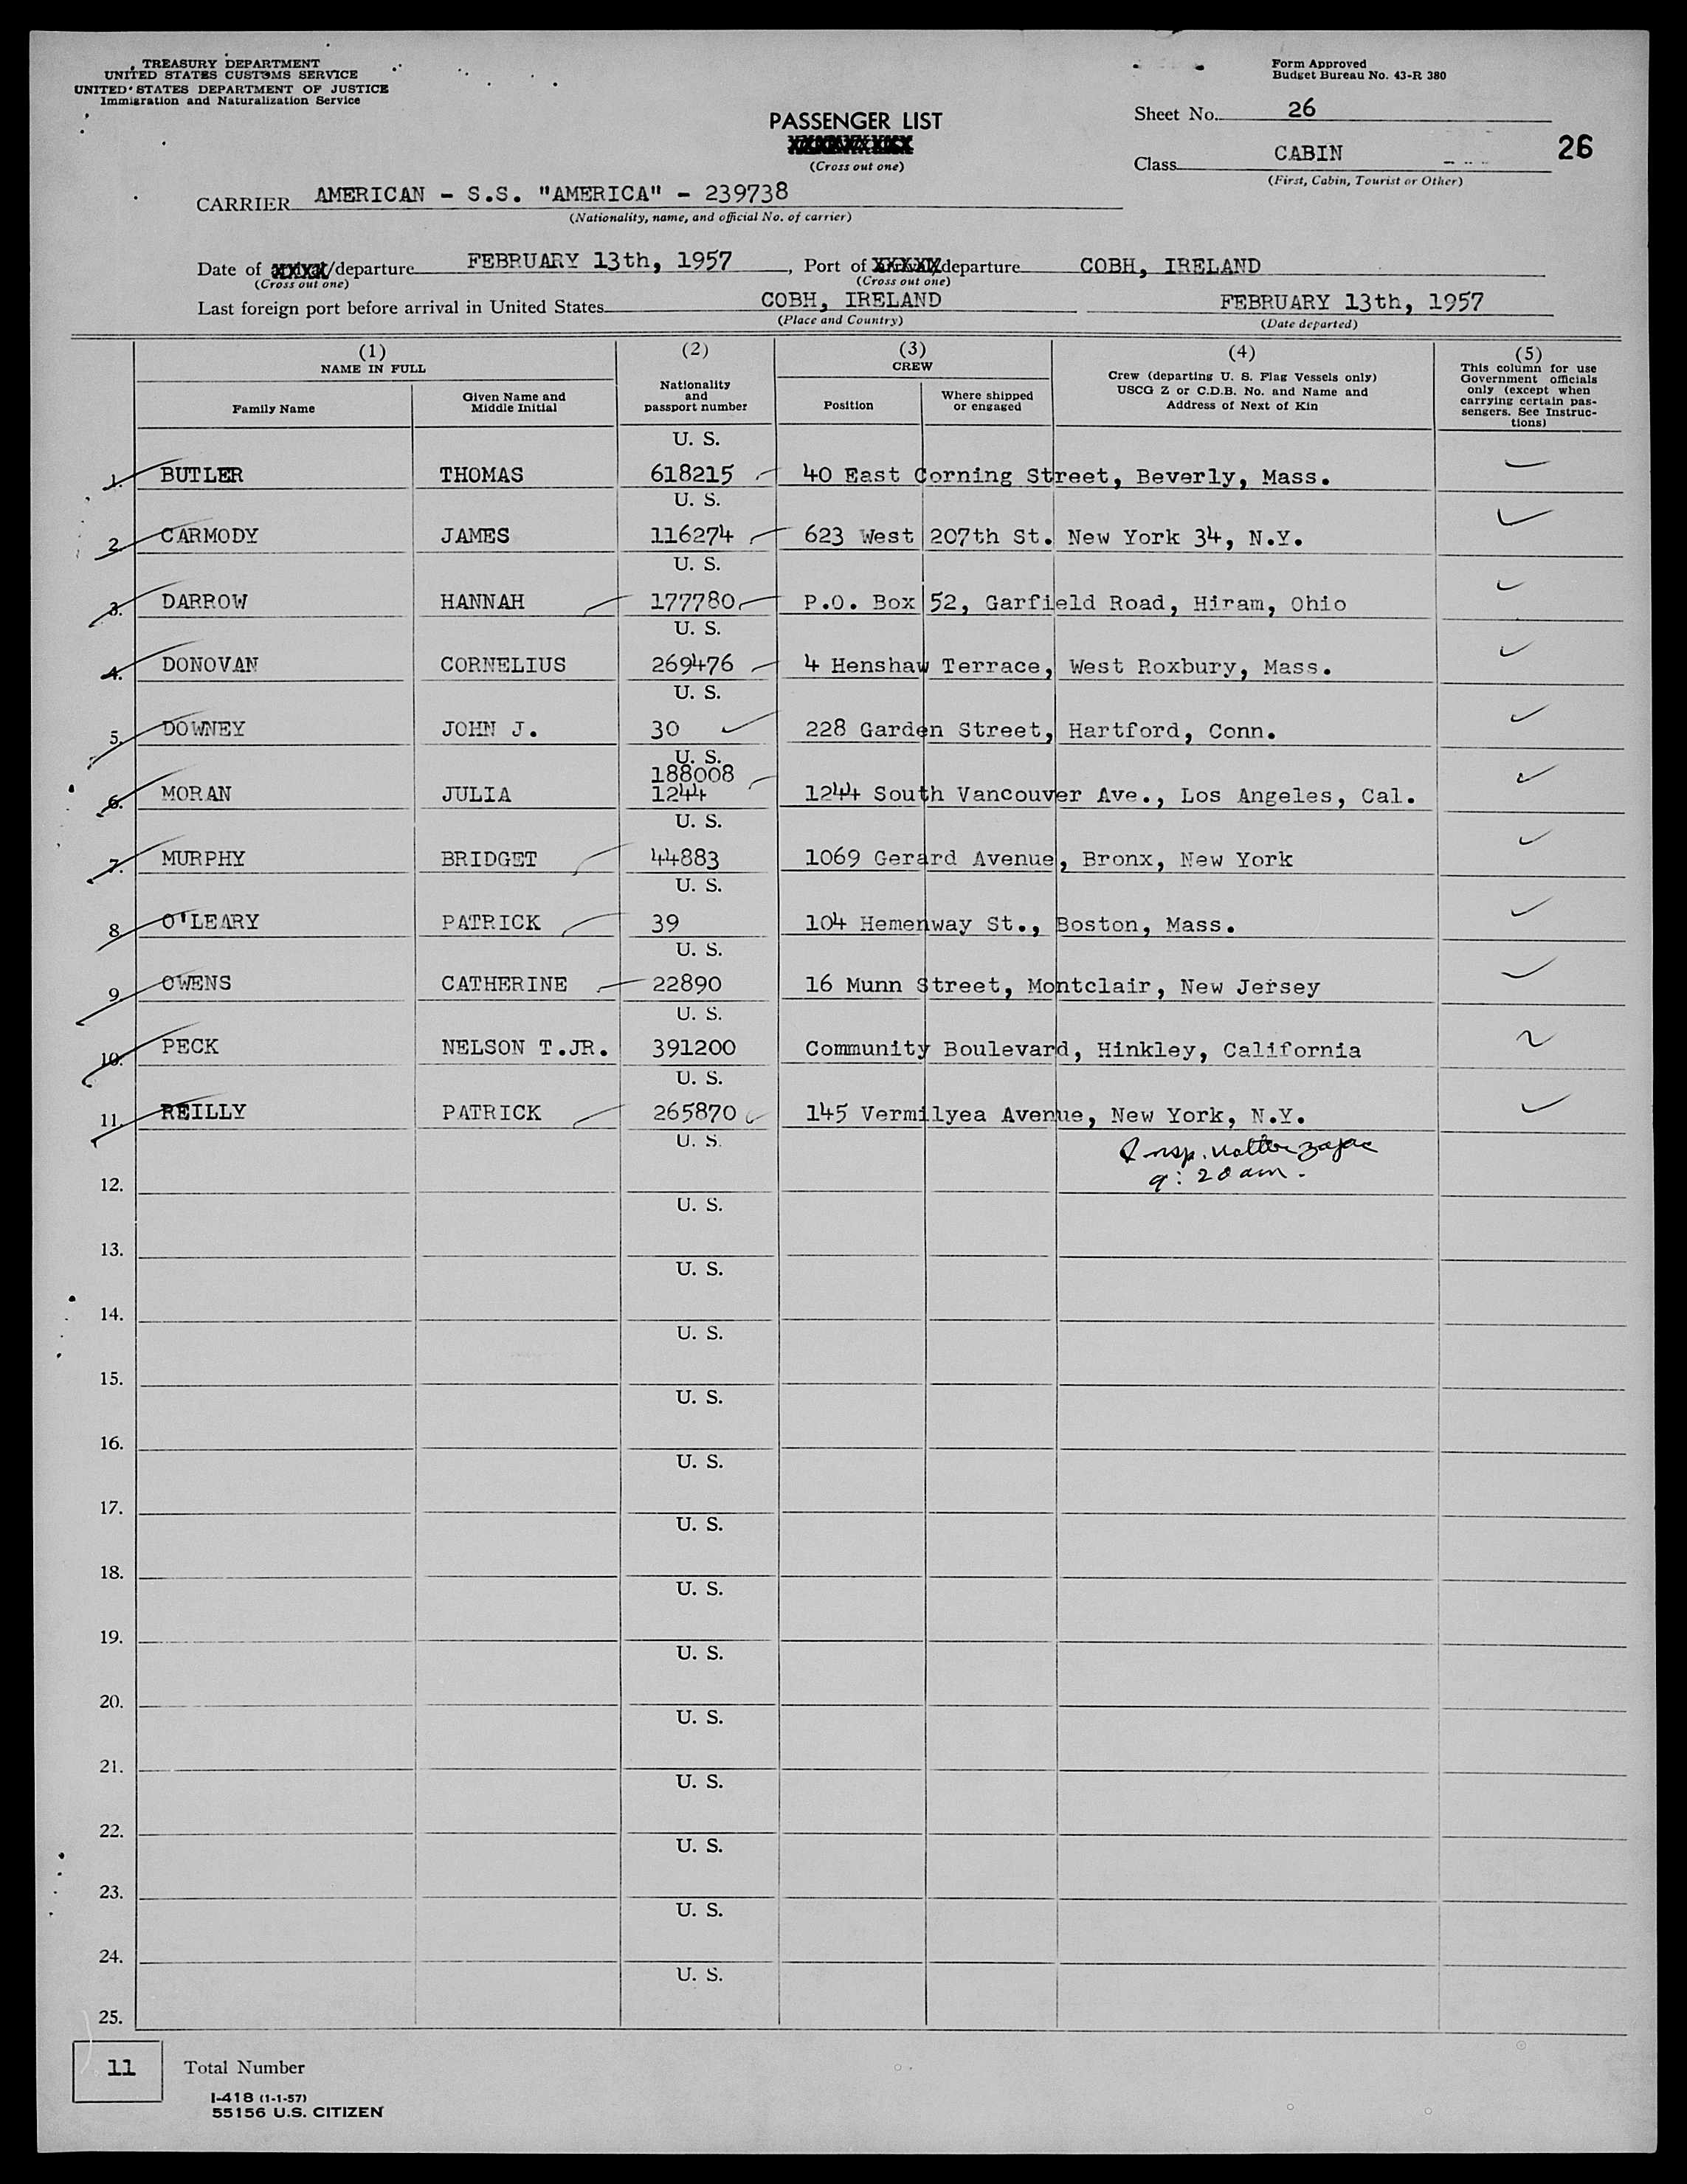 TREASURY DEPARTMENT
UNITED STATES CUSTOMS SERVICE
UNITED STATES DEPARTMENT OF JUSTICE
Immigration and Naturalization Service
Form Approved
Budget Bureau No. 43-R 380
PASSENGER LIST
(Cross out one)
Sheet No. 26
26
Class CABIN
(First, Cabin, Tourist or Other)
CARRIER AMERICAN - S.S. "AMERICA" - 239738
(Nationality, name, and official No. of carrier)
Date of /departure FEBRUARY 13th, 1957, Port of departure COBH, IRELAND
(Cross out one) (Cross out one)
Last foreign port before arrival in United States COBH, IRELAND FEBRUARY 13th, 1957
(Place and Country) (Date departed)
(1) NAME IN FULL
Family Name
Given Name and Middle Initial
(2)
Nationality and passport number
(3) CREW
Position
Where shipped or engaged
(4)
Crew (departing U. S. Flag Vessels only)
USCG Z or C.D.B. No. and Name and
Address of Next of Kin
(5)
This column for use
Government officials
only (except when
carrying certain pas-
sengers. See Instruc-
tions)
U. S.
1. BUTLER THOMAS 618215 40 East Corning Street, Beverly, Mass.
U. S.
2. CARMODY JAMES 116274 623 West 207th St. New York 34, N.Y.
U. S.
3. DARROW HANNAH 177780 P.O. Box 52, Garfield Road, Hiram, Ohio
U. S.
4. DONOVAN CORNELIUS 269476 4 Henshaw Terrace, West Roxbury, Mass.
U. S.
5. DOWNEY JOHN J. 30 228 Garden Street, Hartford, Conn.
U. S.
188008
6. MORAN JULIA 1244 1244 South Vancouver Ave., Los Angeles, Cal.
U. S.
7. MURPHY BRIDGET 44883 1069 Gerard Avenue, Bronx, New York
U. S.
8. O'LEARY PATRICK 39 104 Hemenway St., Boston, Mass.
U. S.
9. OWENS CATHERINE 22890 16 Munn Street, Montclair, New Jersey
U. S.
10. PECK NELSON T.JR. 391200 Community Boulevard, Hinkley, California
U. S.
11. REILLY PATRICK 265870 145 Vermilyea Avenue, New York, N.Y.
U. S.
Insp.
9:20 am.
12.
U. S.
13.
U. S.
14.
U. S.
15.
U. S.
16.
U. S.
17.
U. S.
18.
U. S.
19.
U. S.
20.
U. S.
21.
U. S.
22.
U. S.
23.
U. S.
24.
U. S.
25.
11 Total Number
I-418 (1-1-57)
55156 U.S. CITIZEN